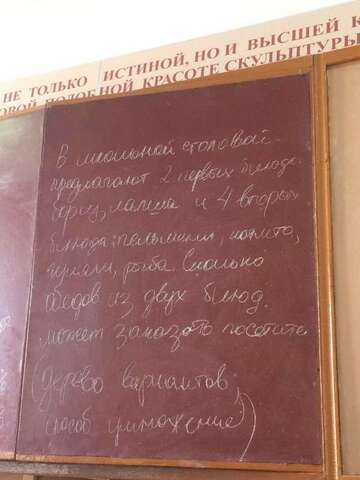 НЕ ТОЛЬКО ИСТИНОЙ, НО И ВЫСШЕЙ К
ОВОЙ ПОДОБНОЙ КРАСОТЕ СКУЛЬПТУРЫ
В школьной столовой
предлагают 2 первых блюда:
борщ, лапша и 4 вторых
блюда: пельмени, котлета,
рыба. Сколько
обедов из двух блюд
может заказать посетите
(дерево вариантов,
способ умножение)